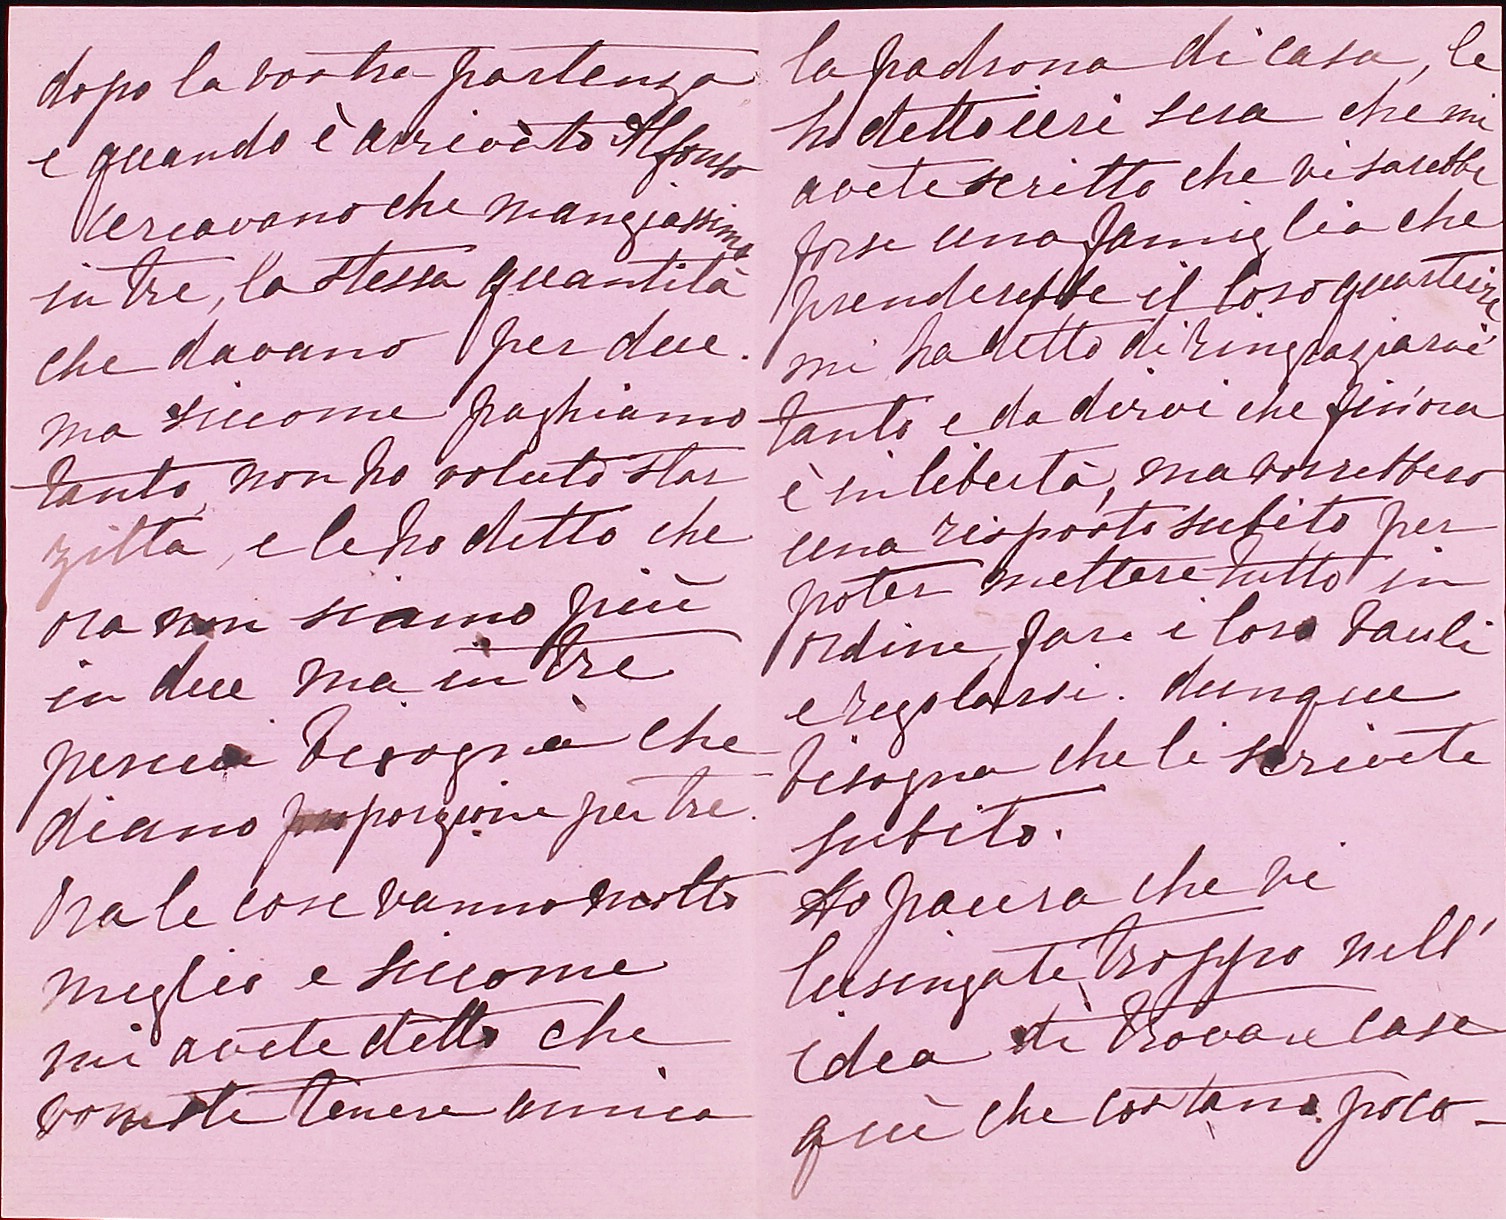 dopo la vostra partenza
e quando è arrivato Alfonso
cercavano che mangiassimo
in tre, la stessa quantità
che davano per due.
ma siccome paghiamo
tanto, non ho voluto star
zitta, e le ho detto che
ora non siamo più
in due ma in tre
perciò bisogna che
diano proporzione per tre.
Ora le cose vanno molto
meglio e siccome
mi avete detto che
vorreste tenere amica
la padrona di casa, le
ho detto ieri sera che mi
avete scritto che vi sarebbe
forse una famiglia che
prenderebbe il loro quartiere
mi ha detto di ringraziarvi
tanto e da dirvi che fin'ora
è in libertà, ma vorrebbero
una risposta subito per
poter mettere tutto in
ordine, fare i loro bauli
e regolarsi. dunque
bisogna che li scrivete
subito.
Ho paura che vi
lusingate troppo nell'
idea di trovare case
quì che costano poco -